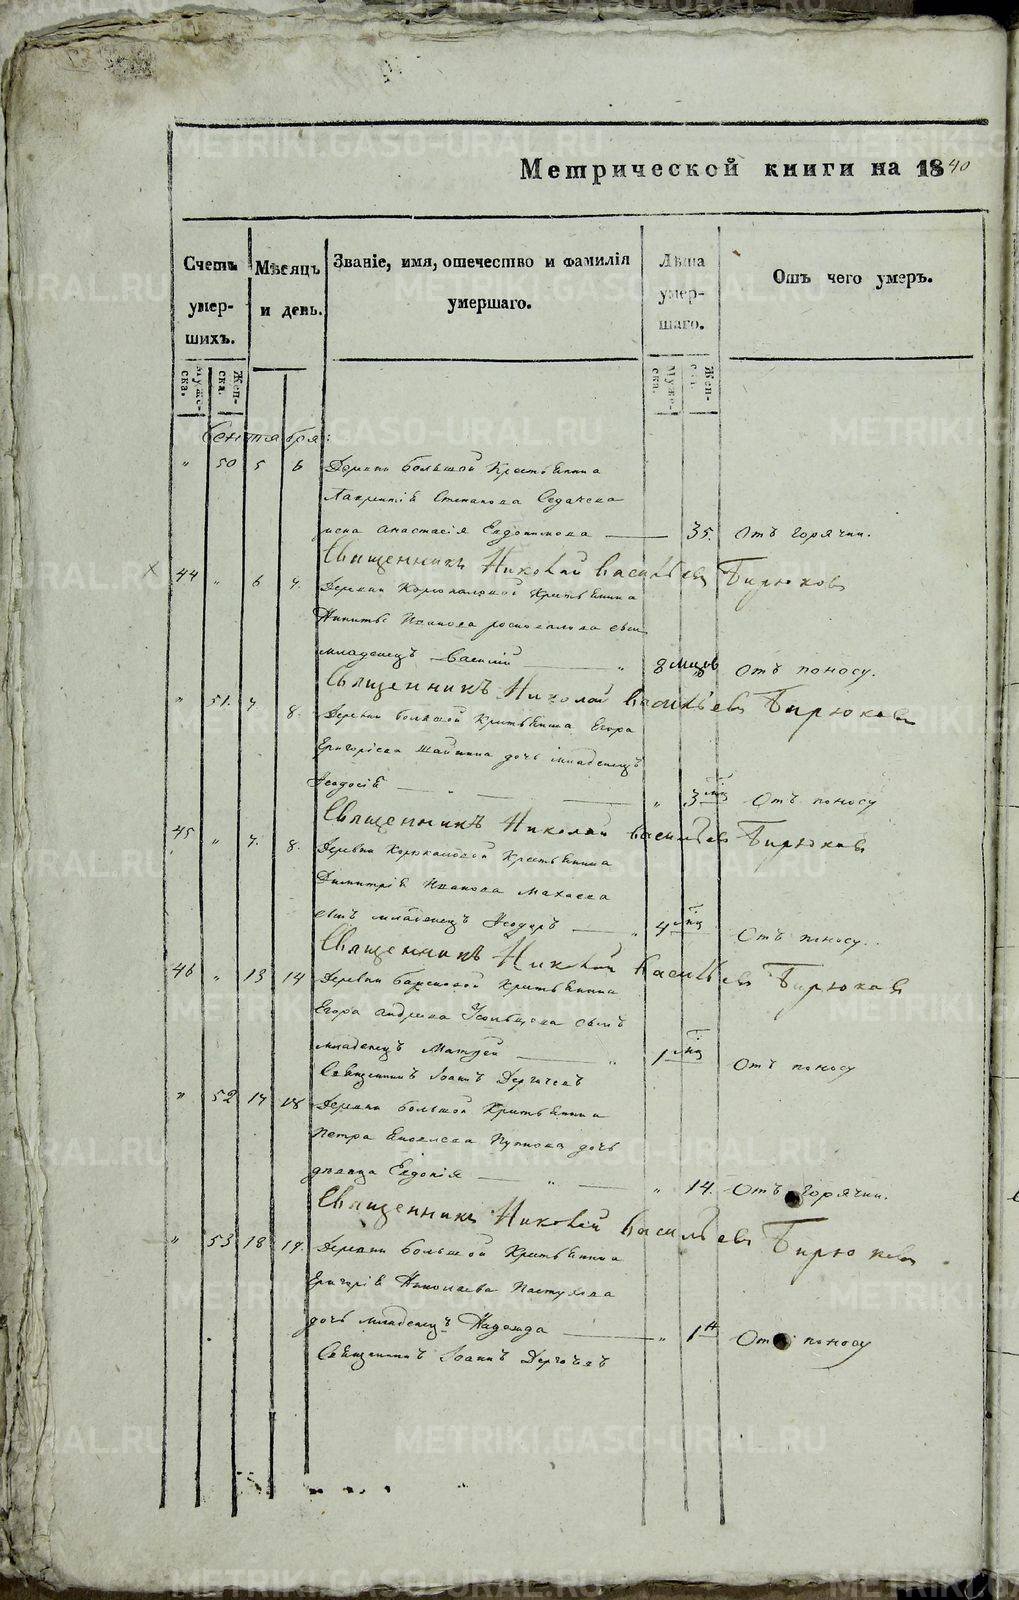 Метрической книги на 1840
Счетъ умер- шихъ.
Мѣсяцъ и день.
Званіе, имя, отечество и фамилія умершаго.
Лѣта умер- шаго.
Отъ чего умеръ.
Муже- ска.
Жен- ска.
Муже- ска.
Жен- ска.
Сентября:
" 50 5 6 Деревни Большой Крестьянина
Лаврентія Степанова
жена Анастасія Евдокимова 35. отъ горячки.
Священникъ Николай Васильевъ Бирюковъ
44 " 6 7. Деревни Крестьянина
Никиты Иванова сынъ
младенецъ Василій " 8 мцовъ отъ поносу.
Священникъ Николай Васильевъ Бирюковъ
" 51. 7 8. Деревни Большой Крестьянина Егора
Григорьева дочь младенецъ
Феодосія " " 3 мц Отъ поносу
Священникъ Николай Васильевъ Бирюковъ
45 " 7. 8. Деревни Крестьянина
Димитрія Иванова Махнева
сынъ младенецъ Феодоръ " 4 мц Отъ поносу.
Священникъ Николай Васильевъ Бирюковъ
46 " 13 14 Деревни Крестьянина
Егора Андреева сынъ
младенецъ Матфей " 1 мц Отъ поносу
Священникъ Іоаннъ Дергачевъ
" 52 17 18 Деревни Большой Крестьянина
Петра дочь
девица Евдокія " " 14. Отъ горячки.
Священникъ Николай Васильевъ Бирюковъ
" 53 18 19. Деревни Большой Крестьянина
Григорія Николаева Пастухова
дочь младенецъ Надежда " 1 н Отъ поносу
Священникъ Іоаннъ Дергачевъ
METRIKI.GASO-URAL.RU